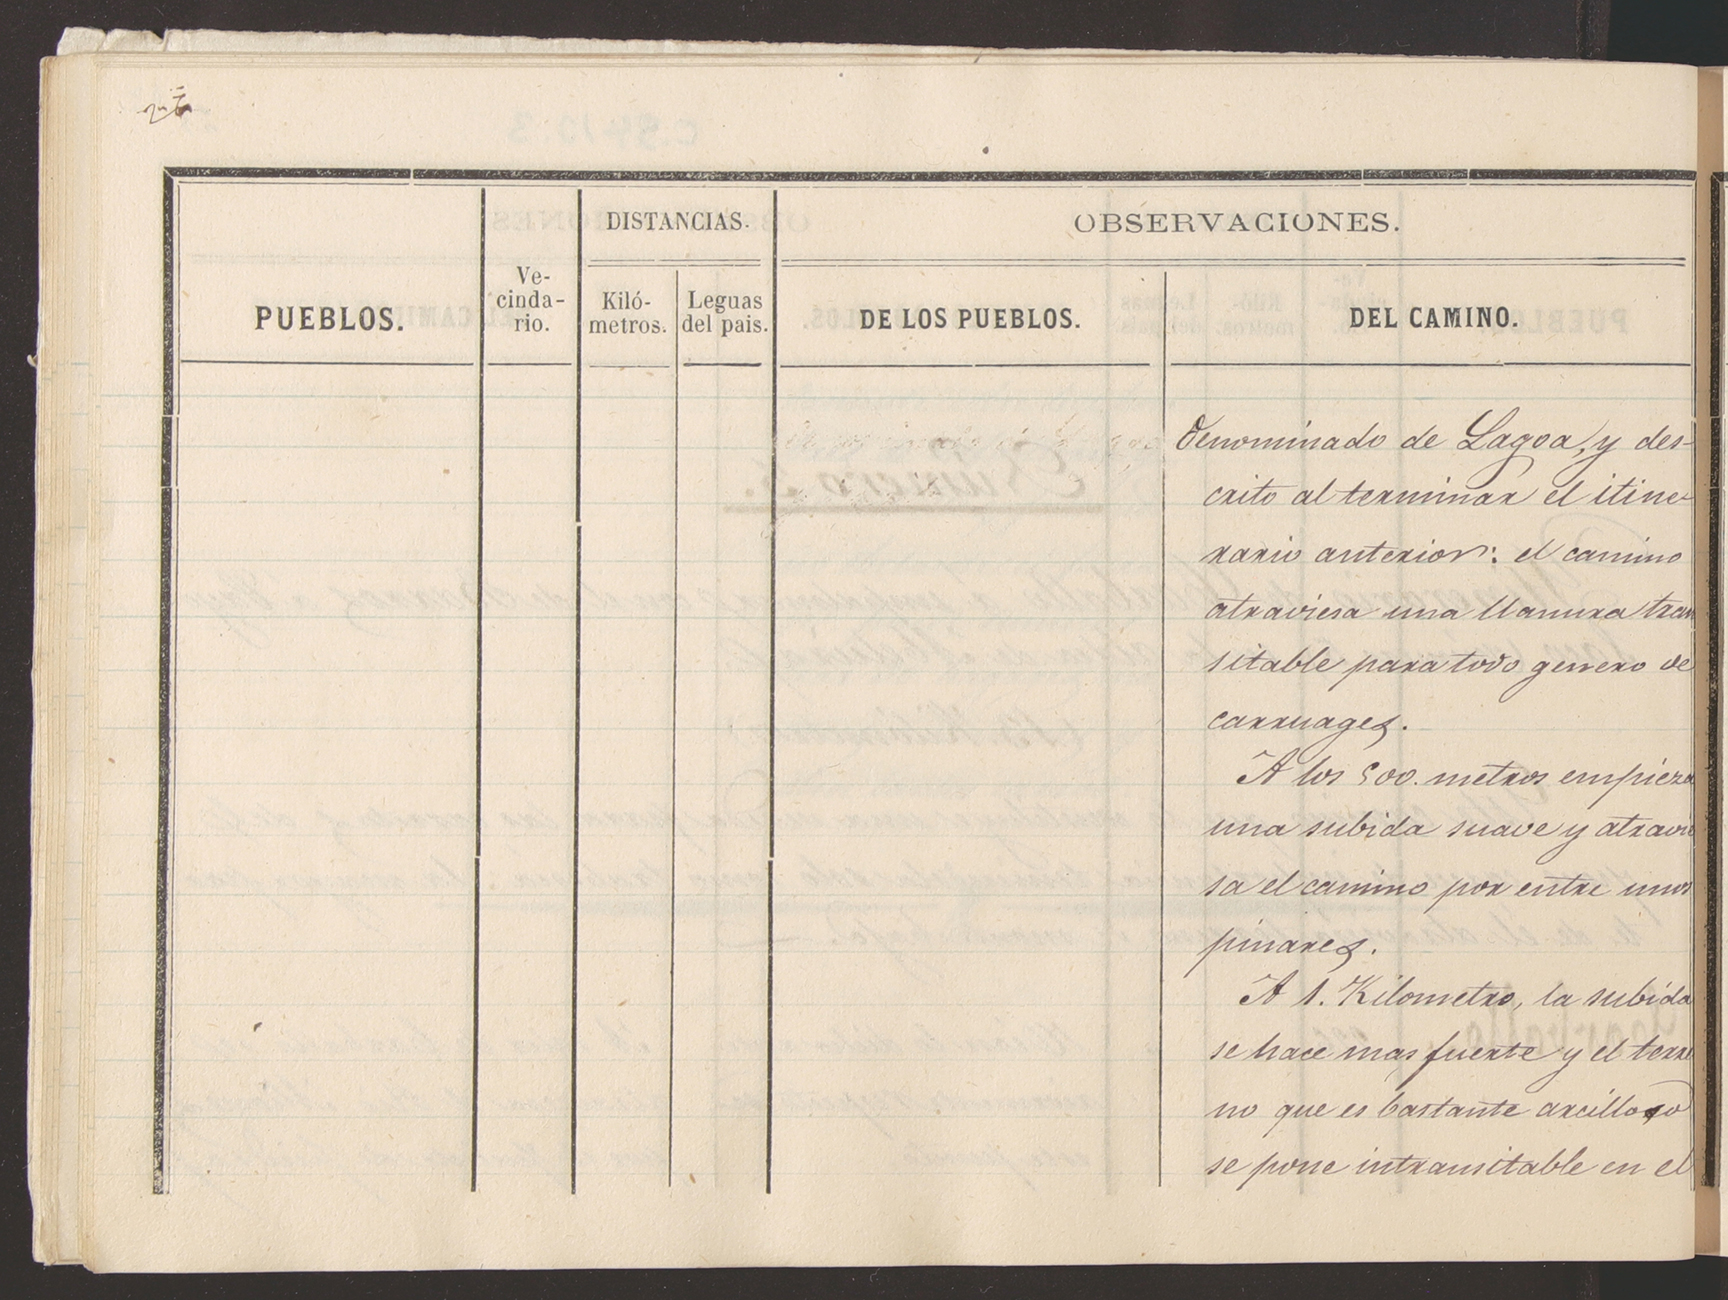 DISTANCIAS.
OBSERVACIONES.
PUEBLOS.
Ve-
cinda-
rio.
Kiló-
metros.
Leguas
del pais.
DE LOS PUEBLOS.
DEL CAMINO.
denominado de Lagoa, y des-
crito al terminar el itine-
rario anterior: el camino
atraviesa una llanura tran
sitable para todo genero de
carruages.
A los 500. metros empieza
una subida suave y atravie
sa el camino por entre unos
pinares.
A 1. Kilometro, la subida
se hace mas fuerte y el terre
no que es bastante arcilloso
se pone intransitable en el